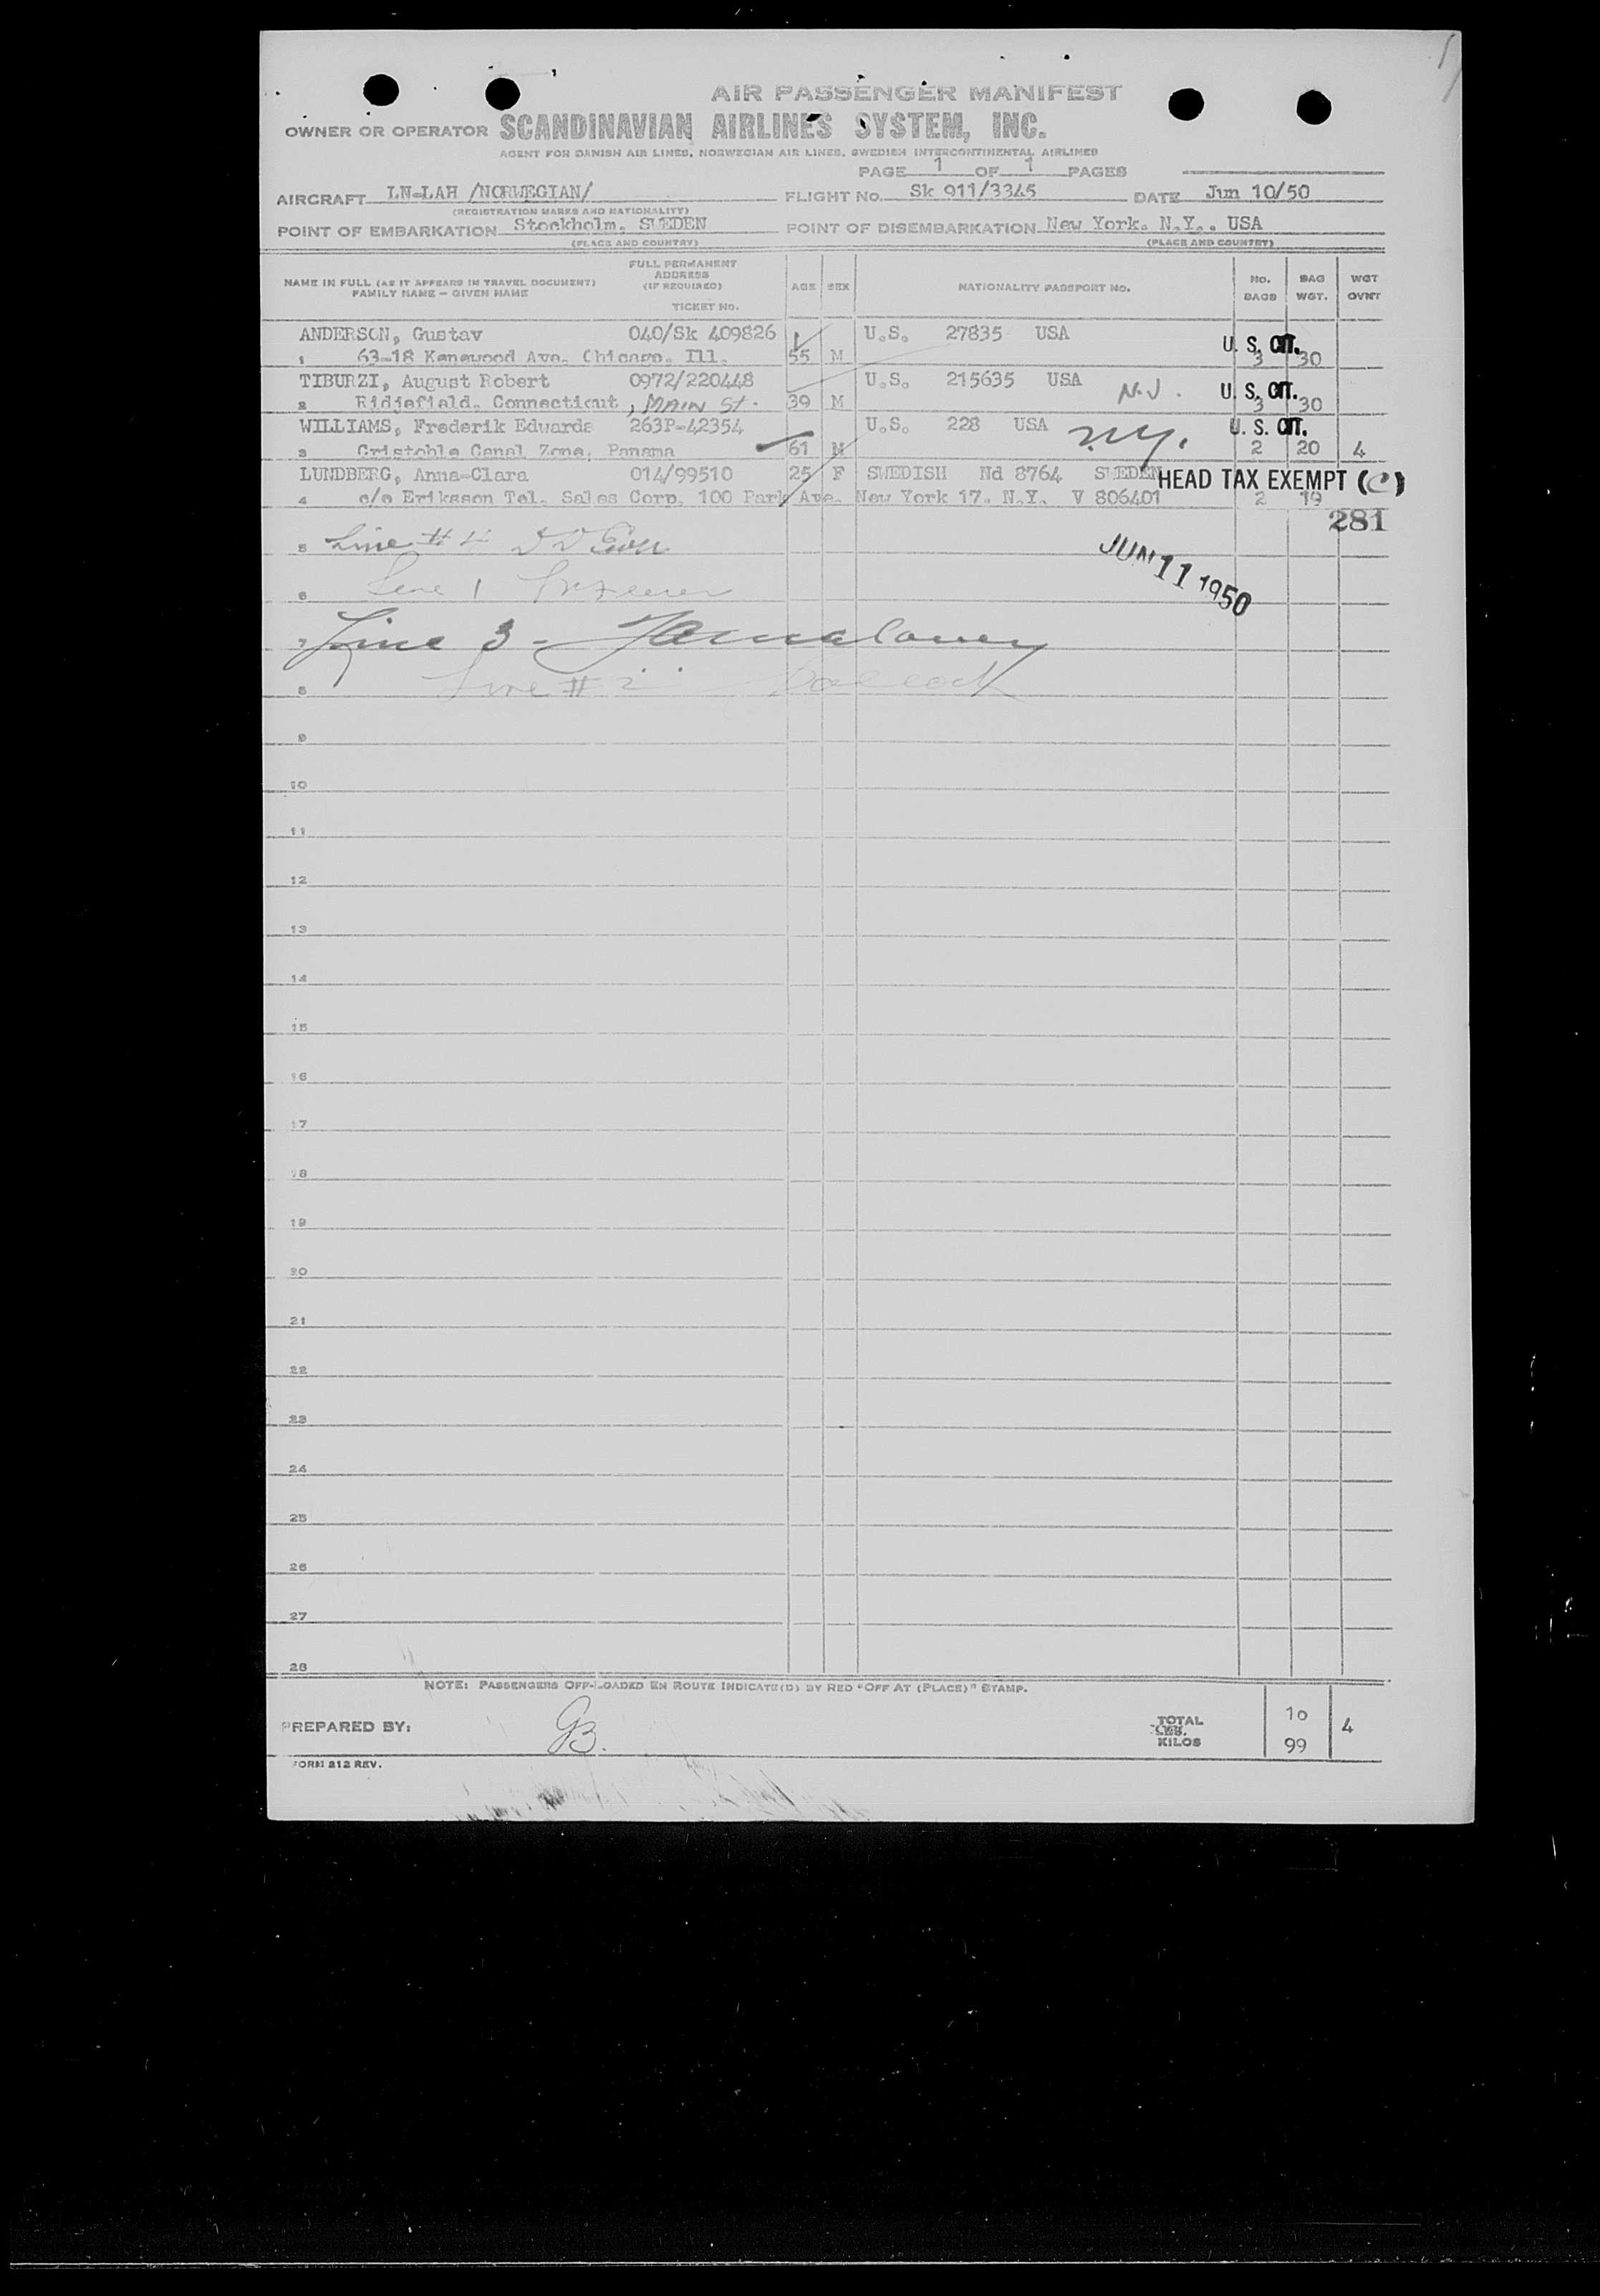 AIR PASSENGER MANIFEST
OWNER OR OPERATOR SCANDINAVIAN AIRLINES SYSTEM, INC.
AGENT FOR DANISH AIR LINES, NORWEGIAN AIR LINES, SWEDISH INTERCONTINENTAL AIRLINES
PAGE 1 OF 1 PAGES
AIRCRAFT LN-LAH /NORWEGIAN/ FLIGHT No. Sk 911/3345 DATE Jun 10/50
(REGISTRATION MARKS AND NATIONALITY)
POINT OF EMBARKATION Stockholm, SWEDEN POINT OF DISEMBARKATION New York. N.Y.. USA
(PLACE AND COUNTRY) (PLACE AND COUNTRY)
NAME IN FULL (AS IT APPEARS IN TRAVEL DOCUMENT) FAMILY NAME — GIVEN NAME FULL PERMANENT ADDRESS (IF REQUIRED) TICKET No. AGE SEX NATIONALITY PASSPORT No. No. BAGS BAG WGT. WGT OVWT
ANDERSON, Gustav 040/Sk 409826 U.S. 27835 USA U. S. CIT.
1 63-18 Kenewood Ave. Chicago. Ill. 55 M 3 30
TIBURZI, August Robert 0972/220448 U.S. 215635 USA N.J. U. S. CIT.
2 Ridjefield. Connecticut, MAIN St. 39 M 3 30
WILLIAMS, Frederik Edwards 263P-42354 U.S. 228 USA n.y. U. S. CIT.
3 Cristoble Canal Zone, Panama 61 M 2 20 4
LUNDBERG, Anna-Clara 014/99510 25 F SWEDISH Nd 8764 SWEDEN HEAD TAX EXEMPT (C)
4 c/o Eriksson Tel. Sales Corp. 100 Park Ave. New York 17. N.Y. V 806401 2 19
281
5 Line # 4
JUN 11 1950
6 Line 1
7 Line 3 -
8 Line # 2
9
10
11
12
13
14
15
16
17
18
19
20
21
22
23
24
25
26
27
28
NOTE: PASSENGERS OFF-LOADED EN ROUTE INDICATE(D) BY RED "OFF AT (PLACE)" STAMP.
PREPARED BY: GB. TOTAL LBS. KILOS 10 99 4
FORM 212 REV.